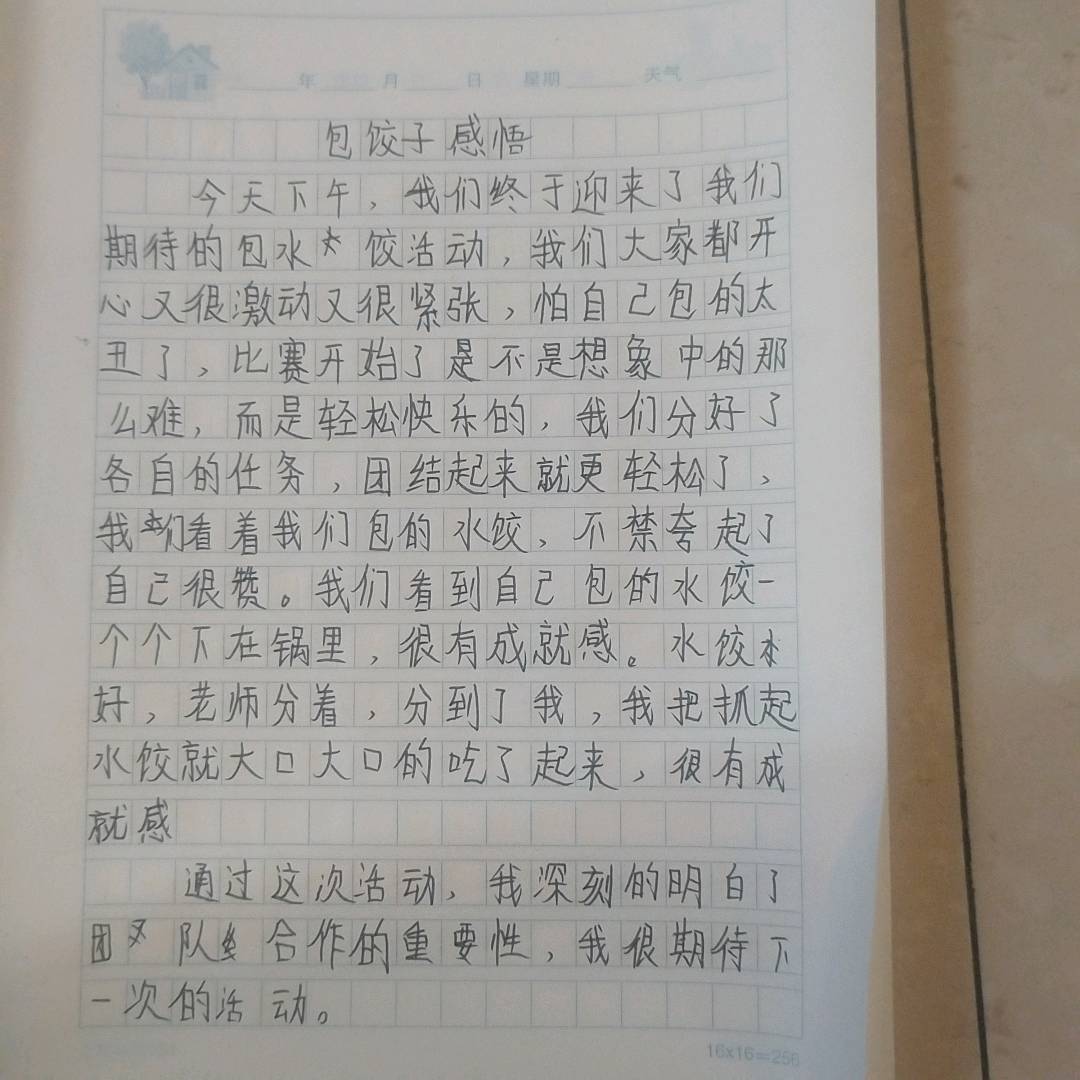 年 月 日 星期 天气
包饺子感悟
今天下午，我们终于迎来了我们
期待的包水饺活动，我们大家都开
心又很激动又很紧张，怕自己包的太
丑了，比赛开始了是不是想象中的那
么难，而是轻松快乐的，我们分好了
各自的任务，团结起来就更轻松了，
我们看着我们包的水饺，不禁夸起了
自己很赞。我们看到自己包的水饺一
个个下在锅里，很有成就感。水饺
好，老师分着，分到了我，我把抓起
水饺就大口大口的吃了起来，很有成
就感
通过这次活动，我深刻的明白了
团队合作的重要性，我很期待下
一次的活动。
16x16=256